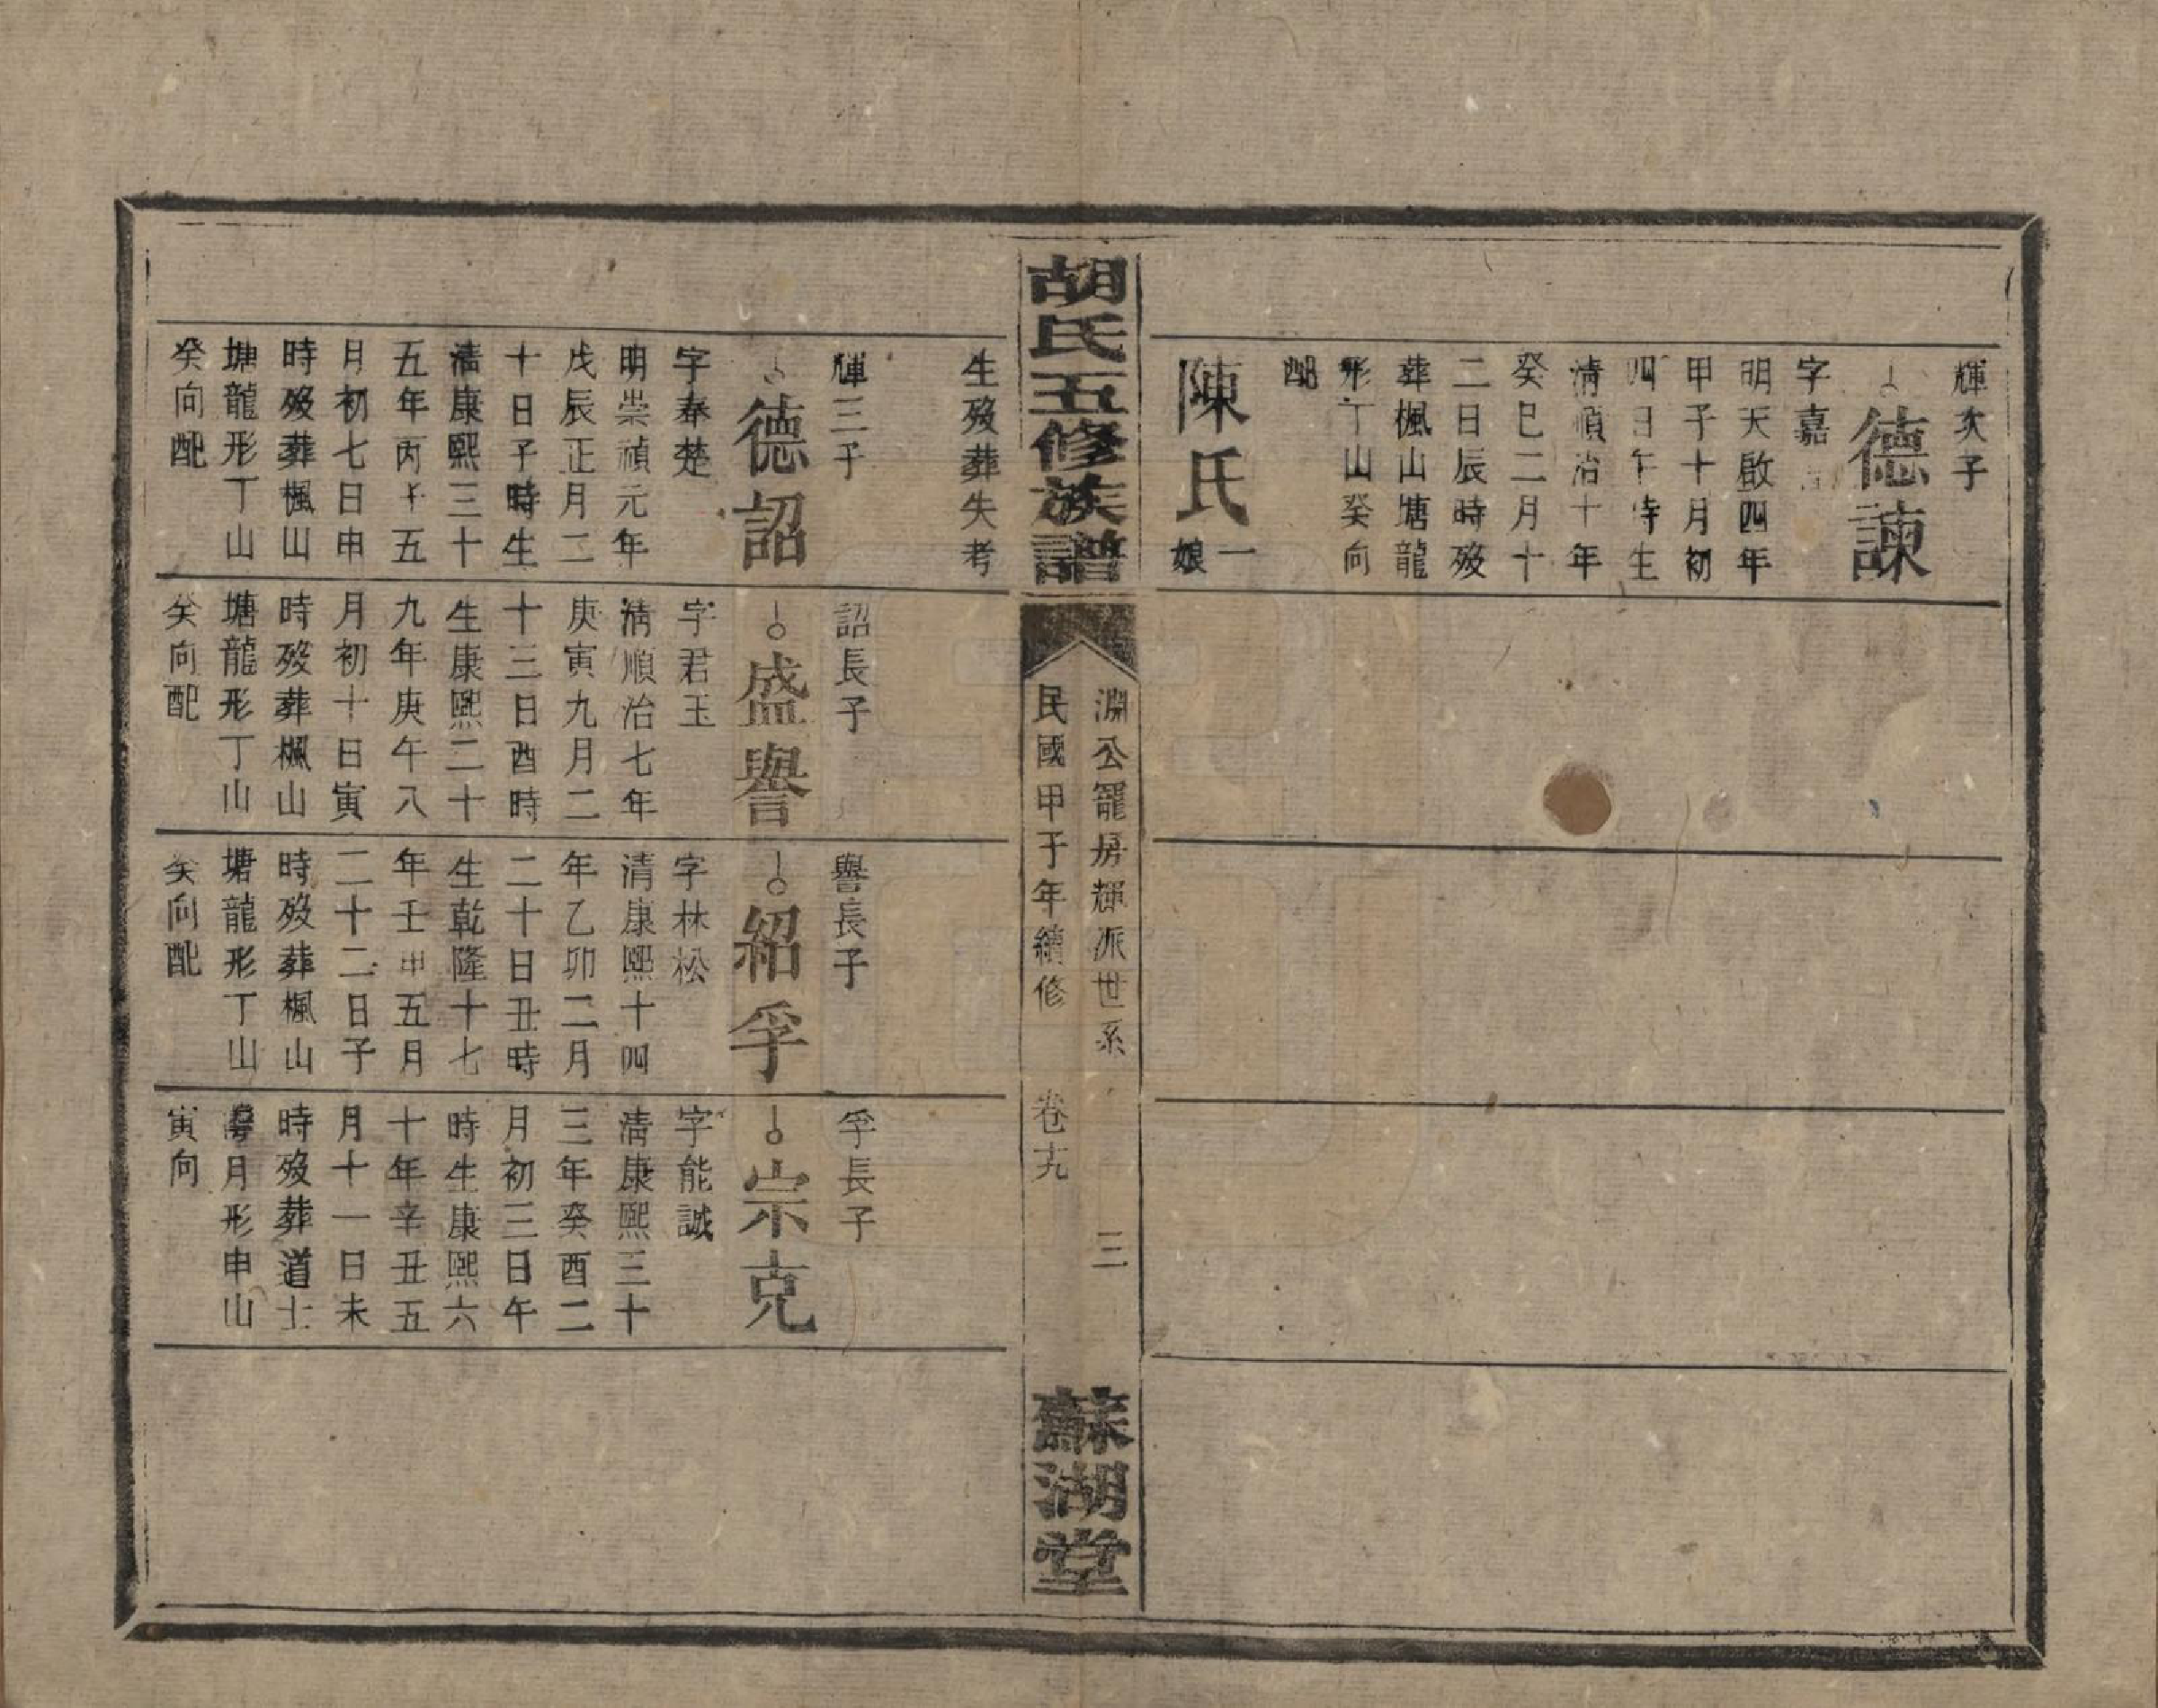 輝次子
德諫
字嘉
明天啟四年
甲子十月初
四日午時生
清順治十年
癸巳二月十
二日辰時歿
葬楓山塘龍
形丁山癸向
配
陳氏一娘
胡氏五修族譜
淵公寵房輝派世系
民國甲子年續修
卷十九
三
蘇湖堂
生歿葬失考
輝三子
德詔
字奉楚
明崇禎元年
戊辰正月二
十日子時生
清康熙三十
五年丙子五
月初七日申
時歿葬楓山
塘龍形丁山
癸向配
詔長子
盛譽
字君玉
清順治七年
庚寅九月二
十三日酉時
生康熙二十
九年庚午八
月初十日寅
時歿葬楓山
塘龍形丁山
癸向配
譽長子
紹孚
字林松
清康熙十四
年乙卯二月
二十日丑時
生乾隆十七
年壬申五月
二十二日子
時歿葬楓山
塘龍形丁山
癸向配
孚長子
宗克
字能誠
清康熙三十
三年癸酉二
月初三日午
時生康熙六
十年辛丑五
月十一日未
時歿葬道士
月形申山
寅向